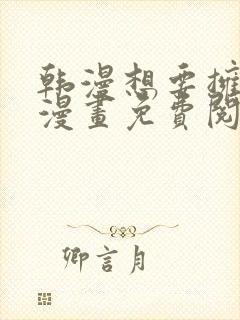 韩漫想要擁
漫畫免費閱
卿言月